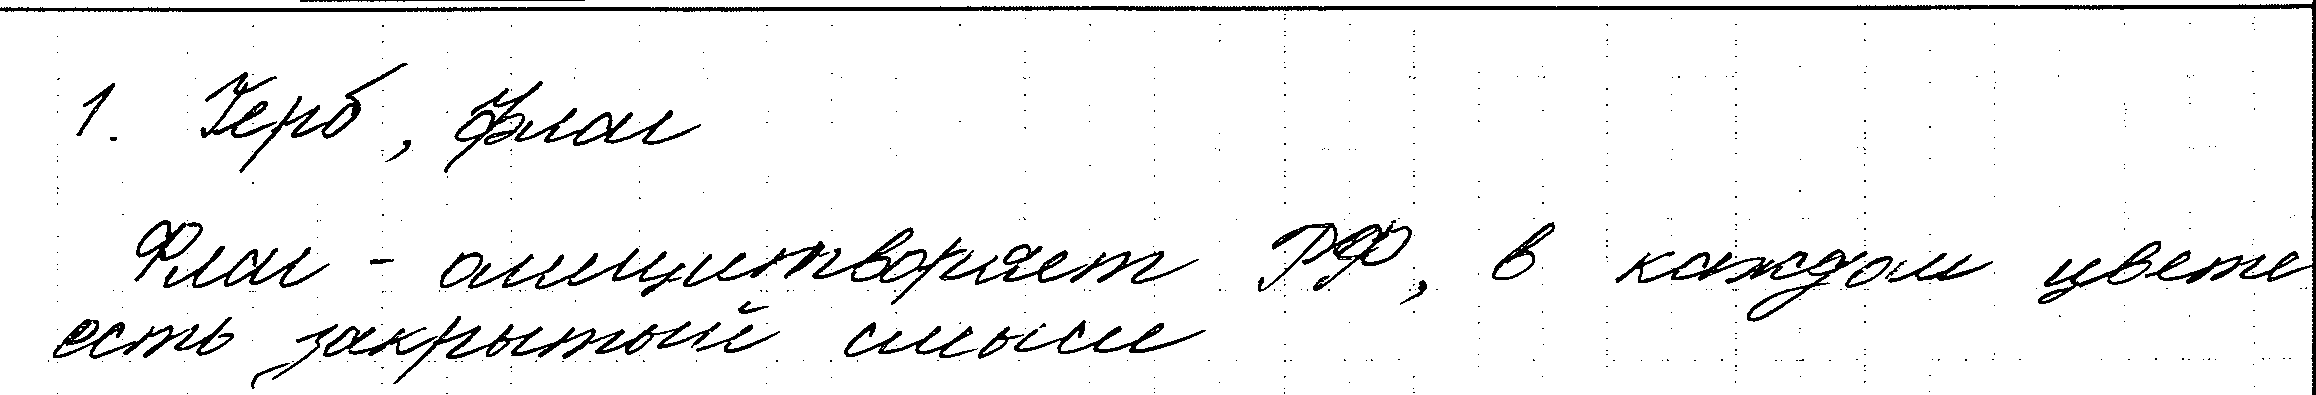 1. Герб, флаг
Флаг - олицетворяет РФ, в каждом цвете
есть закрытый смысл